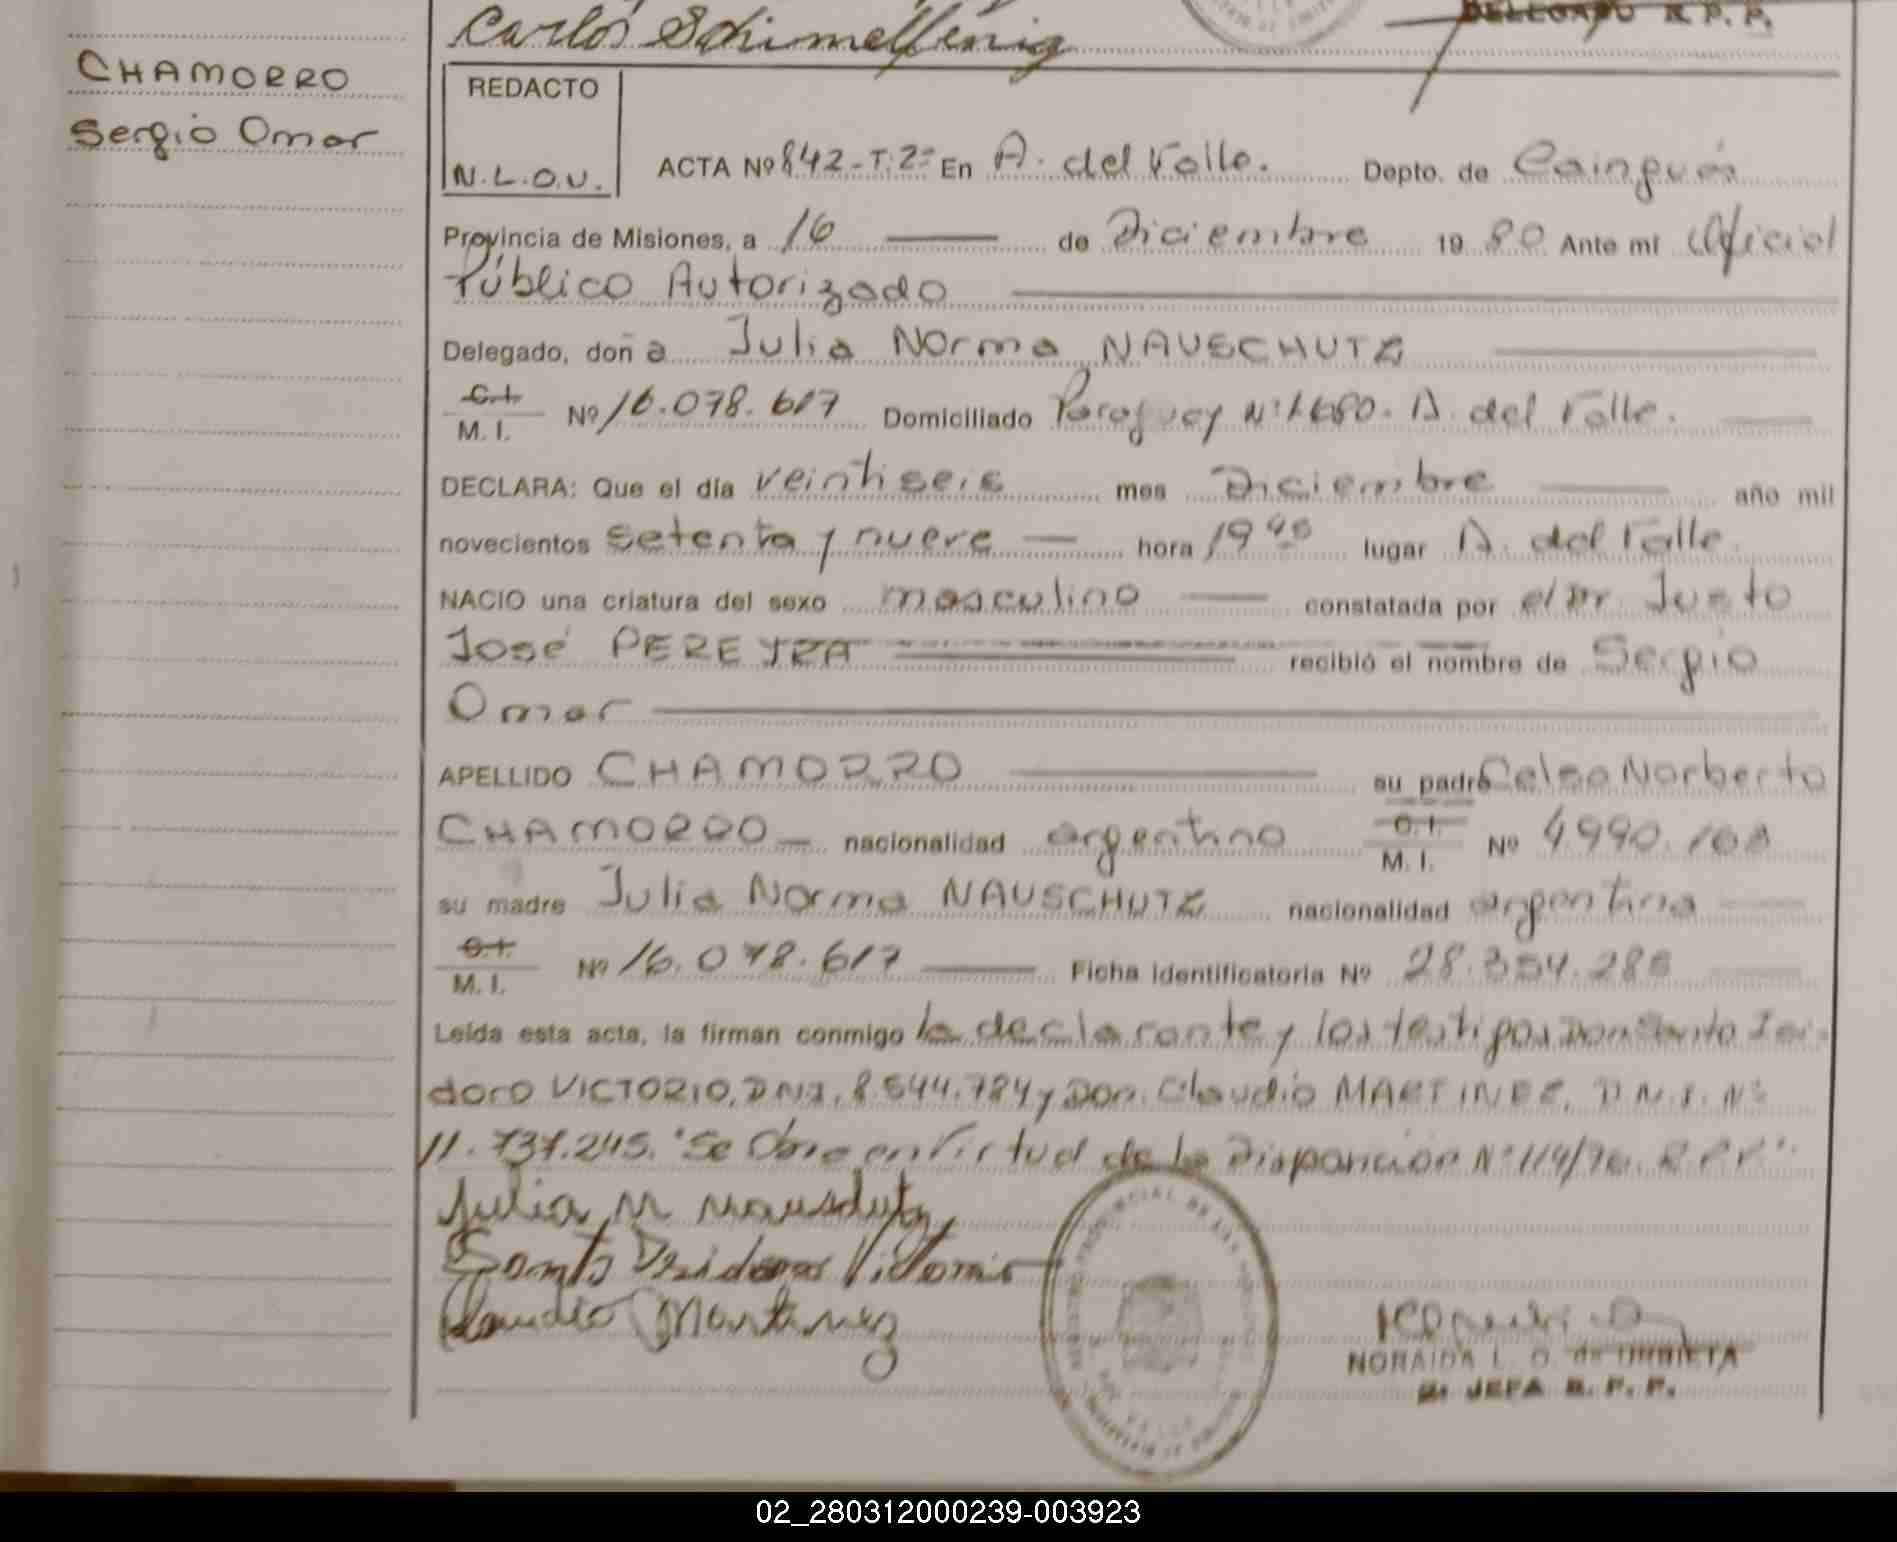 Carlos Schimelfenig
DELEGADO R. P. P.
CHAMORRO
Sergio Omar
REDACTO
N.L.O.U.
ACTA Nº 842-T:2º En A. del Valle. Depto. de Cainguás
Provincia de Misiones, a 16 de Diciembre 19 80 Ante mí Oficial
Público Autorizado
Delegado, doña Julia Norma NAUSCHUTZ
C.I.
M. I. Nº 16.078.617 Domiciliado Paraguay Nº 1680. A. del Valle.
DECLARA: Que el día veintiseis mes Diciembre año mil
novecientos setenta y nueve hora 19 45 lugar A. del Valle.
NACIO una criatura del sexo masculino constatada por el Dr. Justo
José PEREYRA recibió el nombre de Sergio
Omar
APELLIDO CHAMORRO su padre Celso Norberto
CHAMORRO nacionalidad argentino C.I. M. I. Nº 4.990.168
su madre Julia Norma NAUSCHUTZ nacionalidad argentina
C.I.
M. I. Nº 16.078.617 Ficha identificatoria Nº 28.354.286
Leída esta acta, la firman conmigo la declarante y los testigos Don Santo Isi-
doro VICTORIO, DNI. 8.544.784 y Don. Claudio MARTINEZ, D.N.I. Nº
11.737.245. "Se Obro en Virtud de la Disposición Nº 114/76. R.P.P".
Julia N Nauschutz
Santo Isidoro Victorio
Claudio Martinez
NORAIDA L. O. de URBIETA
2ª JEFA R. P. P.
02_280312000239-003923